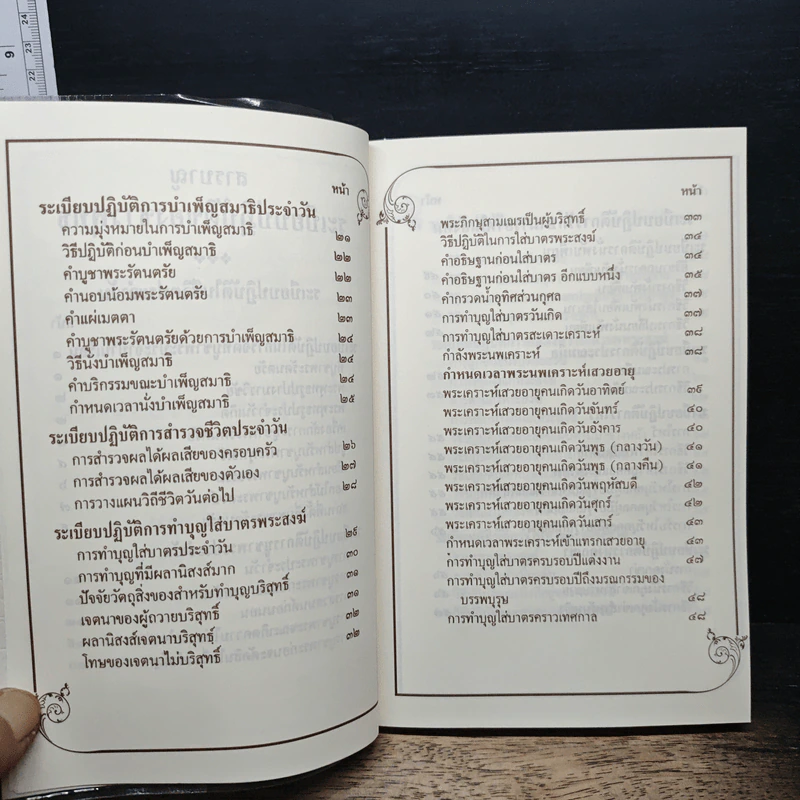 หน้า
ระเบียบปฏิบัติการบำเพ็ญสมาธิประจำวัน
ความมุ่งหมายในการบำเพ็ญสมาธิ ๒๑
วิธีปฏิบัติก่อนบำเพ็ญสมาธิ ๒๒
คำบูชาพระรัตนตรัย ๒๒
คำนอบน้อมพระรัตนตรัย ๒๓
คำแผ่เมตตา ๒๓
คำบูชาพระรัตนตรัยด้วยการบำเพ็ญสมาธิ ๒๔
วิธีนั่งบำเพ็ญสมาธิ ๒๔
คำบริกรรมขณะบำเพ็ญสมาธิ ๒๔
กำหนดเวลานั่งบำเพ็ญสมาธิ ๒๕
ระเบียบปฏิบัติการสำรวจชีวิตประจำวัน
การสำรวจผลได้ผลเสียของครอบครัว ๒๖
การสำรวจผลได้ผลเสียของตัวเอง ๒๗
การวางแผนวิถีชีวิตวันต่อไป ๒๘
ระเบียบปฏิบัติการทำบุญใส่บาตรพระสงฆ์
การทำบุญใส่บาตรประจำวัน ๒๙
การทำบุญที่มีผลานิสงส์มาก ๓๐
ปัจจัยวัตถุสิ่งของสำหรับทำบุญบริสุทธิ์ ๓๑
เจตนาของผู้ถวายบริสุทธิ์ ๓๑
ผลานิสงส์เจตนาบริสุทธิ์ ๓๒
โทษของเจตนาไม่บริสุทธิ์ ๓๒
หน้า
พระภิกษุสามเณรเป็นผู้บริสุทธิ์ ๓๓
วิธีปฏิบัติในการใส่บาตรพระสงฆ์ ๓๔
คำอธิษฐานก่อนใส่บาตร ๓๔
คำอธิษฐานก่อนใส่บาตร อีกแบบหนึ่ง ๓๕
คำกรวดน้ำอุทิศส่วนกุศล ๓๗
การทำบุญใส่บาตรวันเกิด ๓๗
การทำบุญใส่บาตรสะเดาะเคราะห์ ๓๘
กำลังพระนพเคราะห์ ๓๘
กำหนดเวลาพระนพเคราะห์เสวยอายุ
พระเคราะห์เสวยอายุคนเกิดวันอาทิตย์ ๓๙
พระเคราะห์เสวยอายุคนเกิดวันจันทร์ ๔๐
พระเคราะห์เสวยอายุคนเกิดวันอังคาร ๔๐
พระเคราะห์เสวยอายุคนเกิดวันพุธ (กลางวัน) ๔๑
พระเคราะห์เสวยอายุคนเกิดวันพุธ (กลางคืน) ๔๑
พระเคราะห์เสวยอายุคนเกิดวันพฤหัสบดี ๔๒
พระเคราะห์เสวยอายุคนเกิดวันศุกร์ ๔๒
พระเคราะห์เสวยอายุคนเกิดวันเสาร์ ๔๓
กำหนดเวลาพระเคราะห์เข้าแทรกเสวยอายุ ๔๓
การทำบุญใส่บาตรครบรอบปีแต่งงาน ๔๗
การทำบุญใส่บาตรครบรอบปีถึงมรณกรรมของ
บรรพบุรุษ ๔๘
การทำบุญใส่บาตรคราวเทศกาล ๔๘